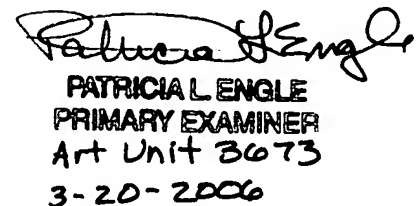 Patricia L Engle
PATRICIA L. ENGLE
PRIMARY EXAMINER
Art Unit 3673
3-20-2006